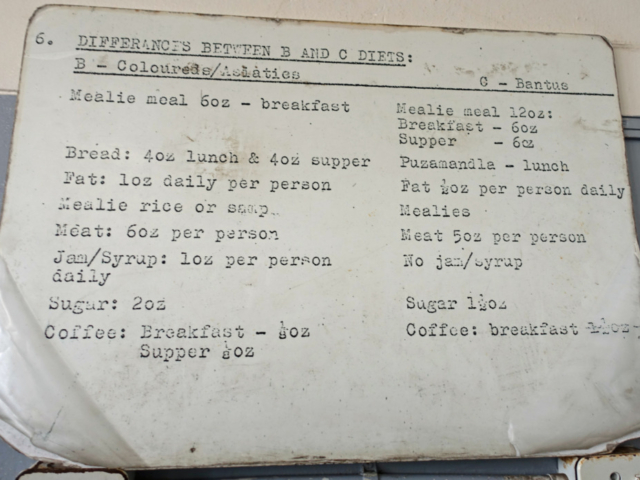 6. DIFFERANCES BETWEEN B AND C DIETS:
B - Coloureds/Asiatics
C - Bantus
Mealie meal 6oz - breakfast
Mealie meal 12oz:
Breakfast - 6oz
Supper - 6oz
Bread: 4oz lunch & 4oz supper
Puzamandla - lunch
Fat: 1oz daily per person
Fat ½oz per person daily
Mealie rice or samp
Mealies
Meat: 6oz per person
Meat 5oz per person
Jam/Syrup: 1oz per person
daily
No jam/syrup
Sugar: 2oz
Sugar 1½oz
Coffee: Breakfast -
Supper
Coffee: breakfast